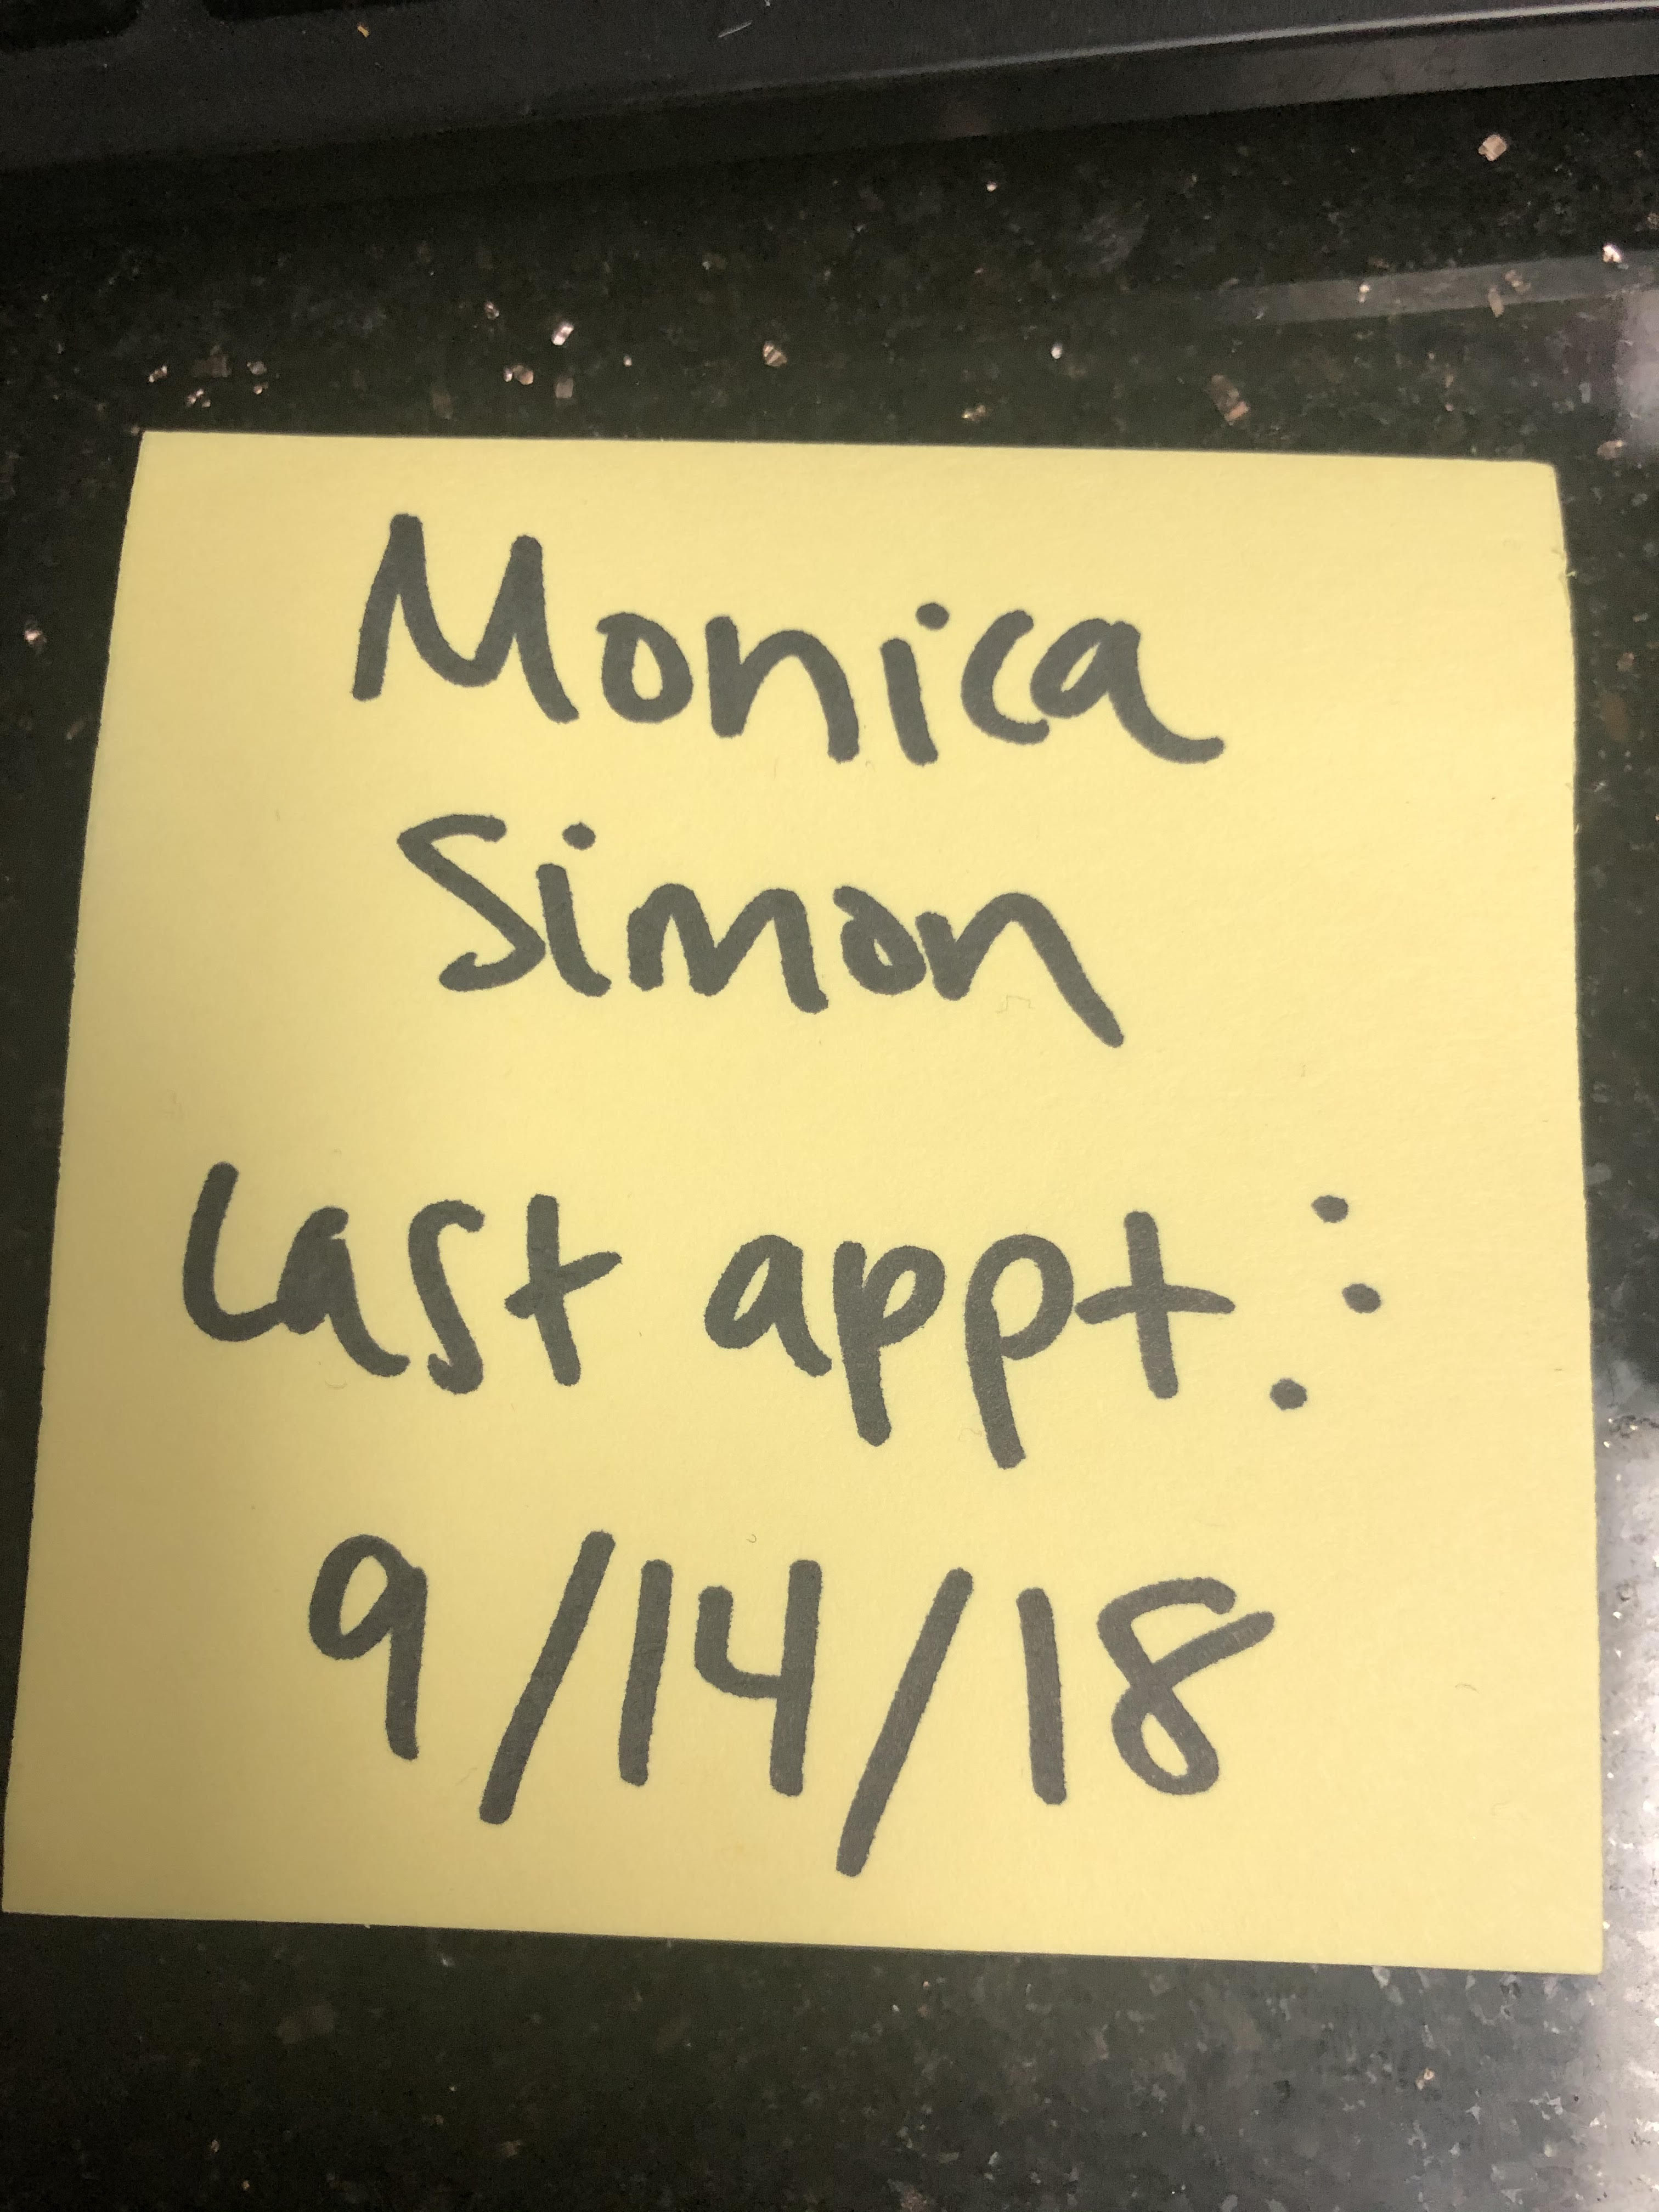 Monica
Simon
Last appt.:
9/14/18